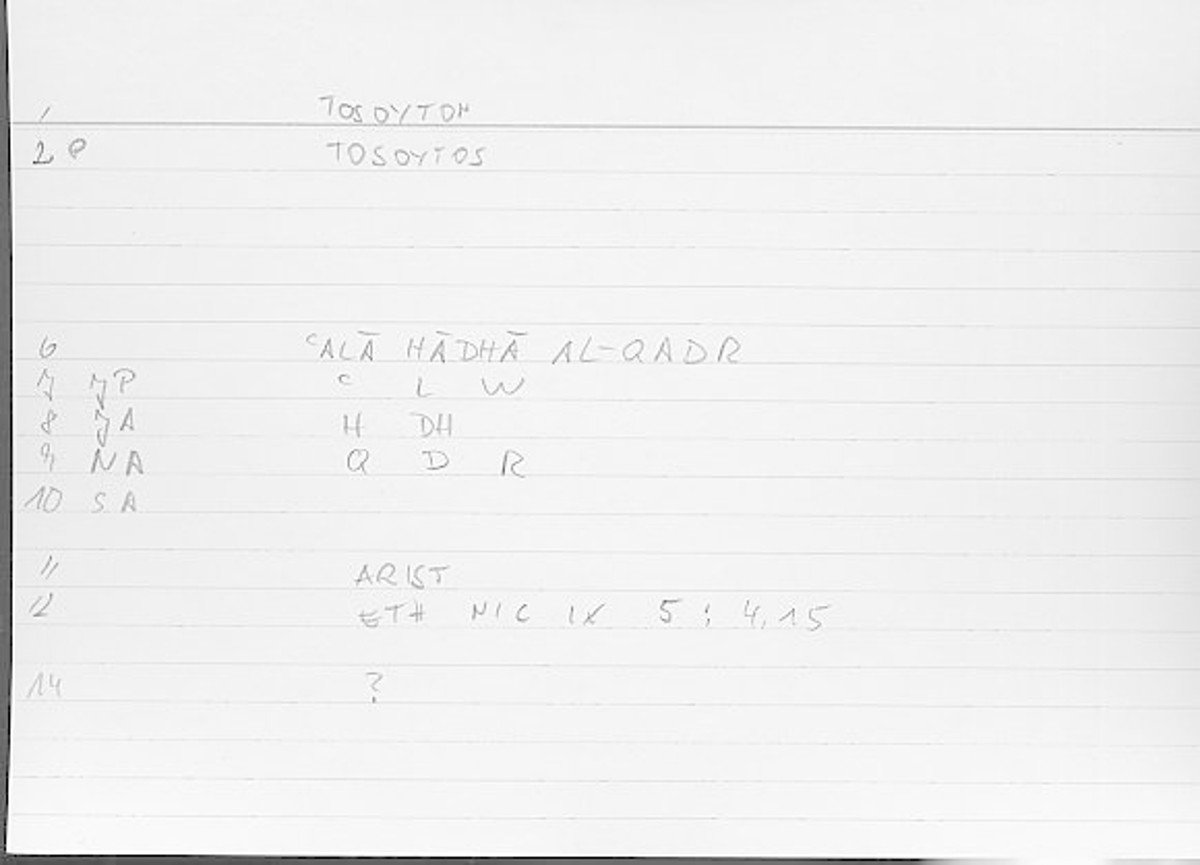 1 TOSOYTON
2 P TOSOYTOS
6 ʿALĀ HĀDHĀ AL-QADR
7 JP ʿ L W
8 JA H DH
9 NA Q D R
10 SA
11 ARIST
12 ETH NIC IX 5 : 4,15
14 ?